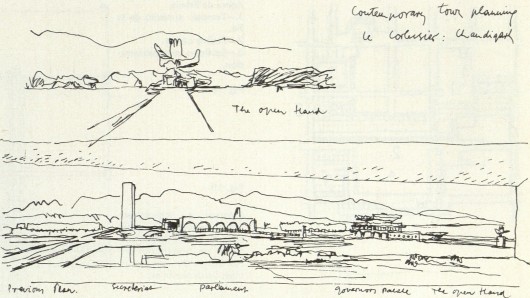 Contemporary town planning
Le Corbusier: Chandigarh
The open Hand
Previous Plan. Secretariat Parliament Governors Palace The open Hand